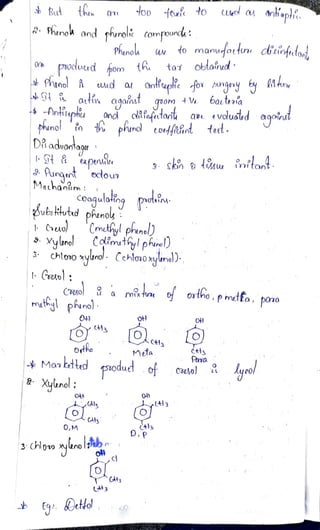 * But then are too toxic to used as antiseptic.
2. Phenols and phenolic compounds:
Phenols use to manufacture disinfectant
are produced from the tar obtained.
* Phenol is used as antiseptic for surgery by lister
* It is active against gram +ve bacteria
* Antiseptic and disinfectants are evaluated against
phenol in the phenol coefficient test.
Disadvantages
1. It is expensive 3. skin & tissue irritant.
2. Pungent odour
Mechanism:
Coagulating proteins.
Substituted phenols:
1. Cresol (methyl phenol)
2. Xylenol (dimethyl phenol)
3. chloro xylenol- (chloroxylenol).
1. Cresol:
Cresol is a mixture of ortho, meta, para
methyl phenol.
OH OH OH
CH3
CH3
CH3
Ortho Meta Para
* Marketted product of cresol is lysol
2. Xylenol:
OH OH
CH3 CH3
CH3 CH3
O,M O,P
3. chloro xylenol:
OH
Cl
CH3
CH3
* Eg: Dettol